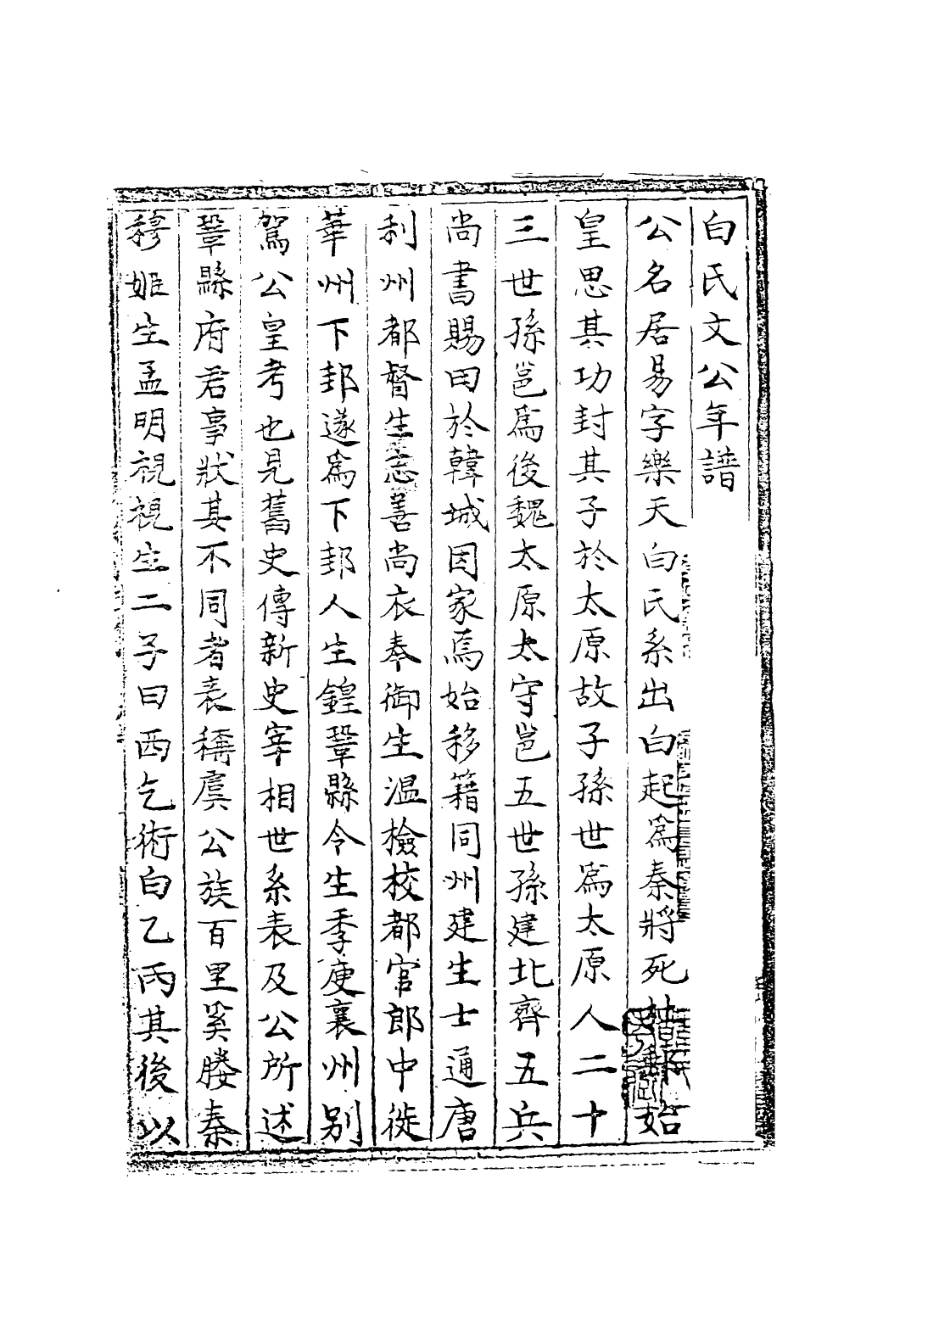 白氏文公年譜
公名居易字樂天白氏系出白起爲秦將死杜郵始
皇思其功封其子於太原故子孫世爲太原人二十
三世孫邕爲後魏太原太守邕五世孫建北齊五兵
尚書賜田於韓城因家焉始移籍同州建生士通唐
利州都督生志善尚衣奉御生温檢校都官郎中徙
華州下邽遂爲下邽人生鍠鞏縣令生季庚襄州别
駕公皇考也見舊史傳新史宰相世系表及公所述
鞏縣府君事狀其不同者表稱虞公族百里奚媵秦
穆姬生孟明視視生二子曰西乞術白乙丙其後以